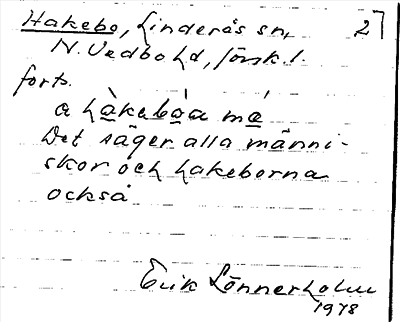 Hakebo, Linderås sn, 2
N. Vedbo hd, Jönk. l.
forts.
a hàkebòa má
Det säger alla männi-
skor och hakeborna
också
Erik Lönnerholm
1978